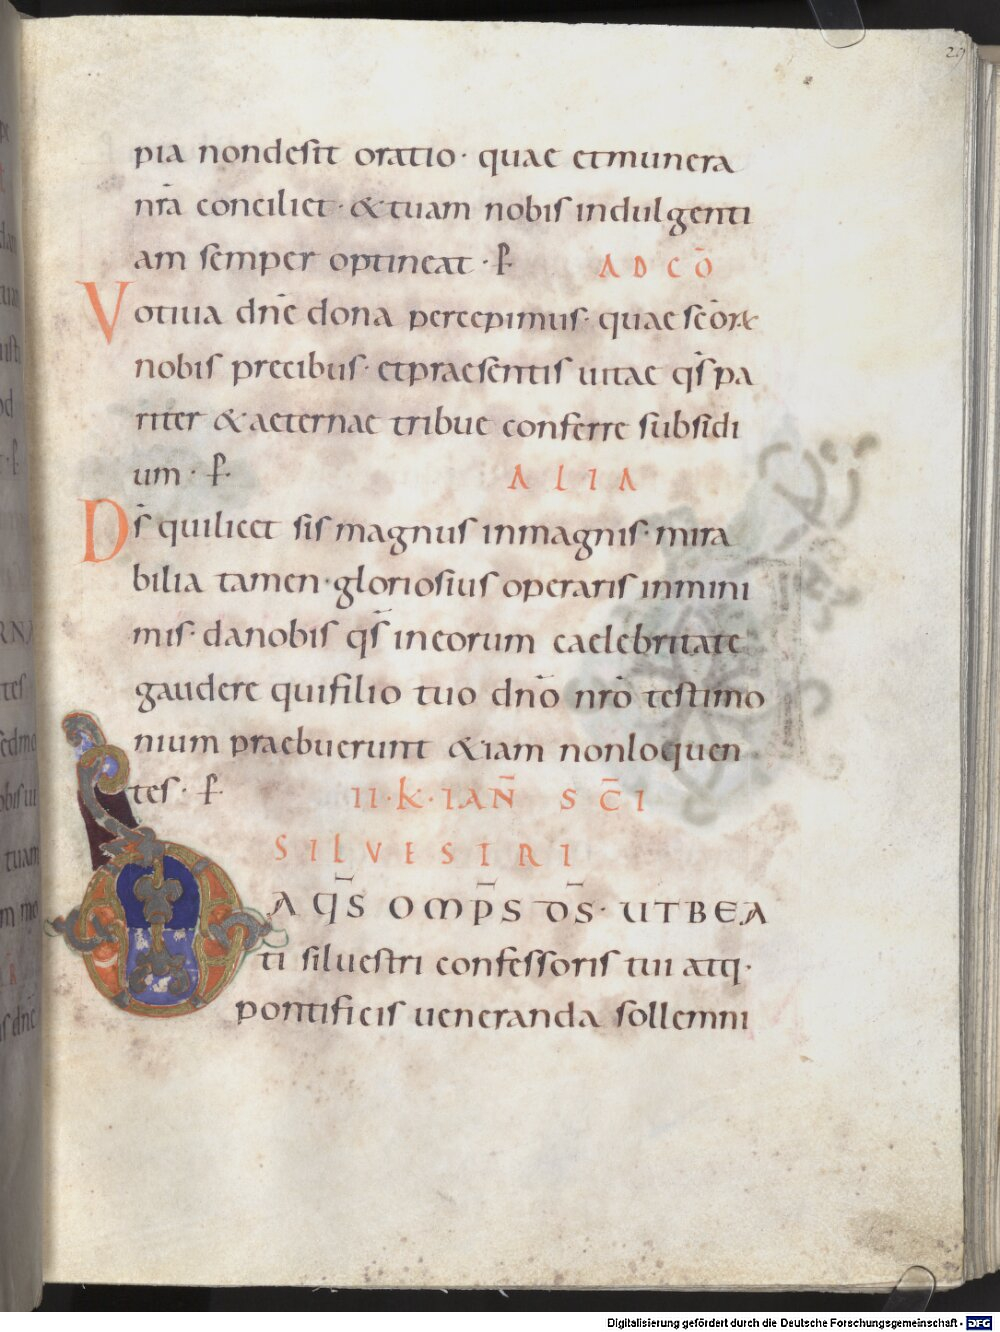 29
pia nondesit oratio· quae etmunera
nr̄a conciliet· &tuam nobis indulgenti
am semper optineat· ꝑ AD CŌ
Votiua dnē dona percepimus· quae sc̄orꝝ
nobis precibus· etpraesentis uitae qs̄ pa
riter & aeternae tribue conferre subsidi
um· ꝑ ALIA
Ds̄ quilicet sis magnus inmagnis· mira
bilia tamen· gloriosius operaris inmini
mis· danobis qs̄ ineorum caelebritate
gaudere quifilio tuo dn̄o nr̄o testimo
nium praebuerunt &iam nonloquen
tes· ꝑ II·K·IAN̄ SC̄I
SILVESTRI
DA QS̄ OMP̄S DS̄· UTBEA
ti siluestri confessoris tui atq·
pontificis ueneranda sollemni
Digitalisierung gefördert durch die Deutsche Forschungsgemeinschaft - DFG